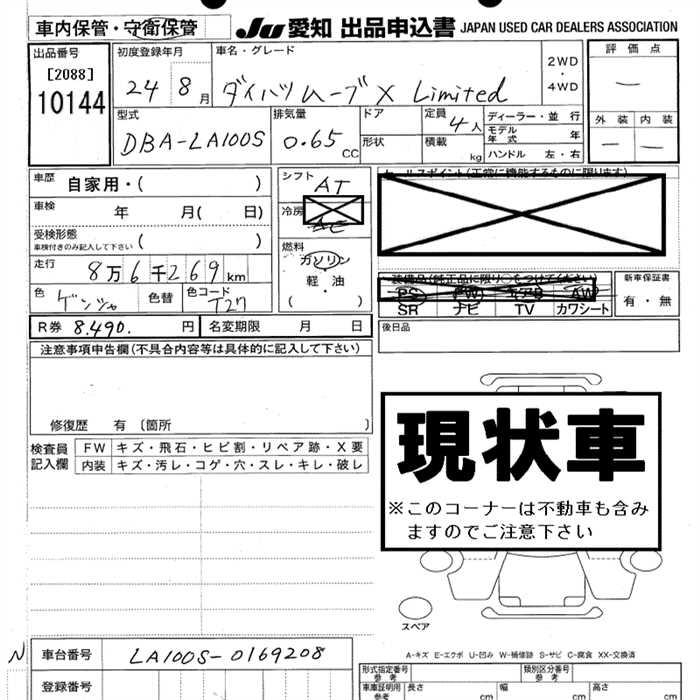 車内保管・守衛保管 JU 愛知 出品申込書 JAPAN USED CAR DEALERS ASSOCIATION
出品番号 初度登録年月 車名・グレード 2WD・4WD 評価点
[2088]
10144 24 8月 ダイハツムーブX Limited —
型式 排気量 ドア 定員 4人 ディーラー・並行 外装 内装
DBA-LA100S 0.65 CC 形状 積載 kg モデル年式 年 — —
ハンドル 左・右
車歴 自家用・( ) シフト AT
車検 年 月( 日) 冷房
受検形態 ( )
車検付きのみ記入して下さい
燃料 ガソリン
軽油
( ・ )
走行 8万6千269km
装備品(純正品に限り○をつけて下さい) 新車保証書
色 ゲンシャ 色替 色コード T27 PS PW エアB AW 有・無
SR ナビ TV カワシート
R券 8,490. 円 名変期限 月 日 後日品
注意事項申告欄(不具合内容等は具体的に記入して下さい)
修復歴 有 〔箇所 〕
検査員記入欄 FW キズ・飛石・ヒビ割・リペア跡・X要
内装 キズ・汚レ・コゲ・穴・スレ・キレ・破レ
現状車
※このコーナーは不動車も含み
ますのでご注意下さい
スペア
A-キズ E-エクボ U-凹み W-補修跡 S-サビ C-腐食 XX-交換済
N 車台番号 LA100S-0169208
登録番号
形式指定番号 参考 類別区分番号 参考
車庫証明用 参考 長さ cm 幅 cm 高さ cm